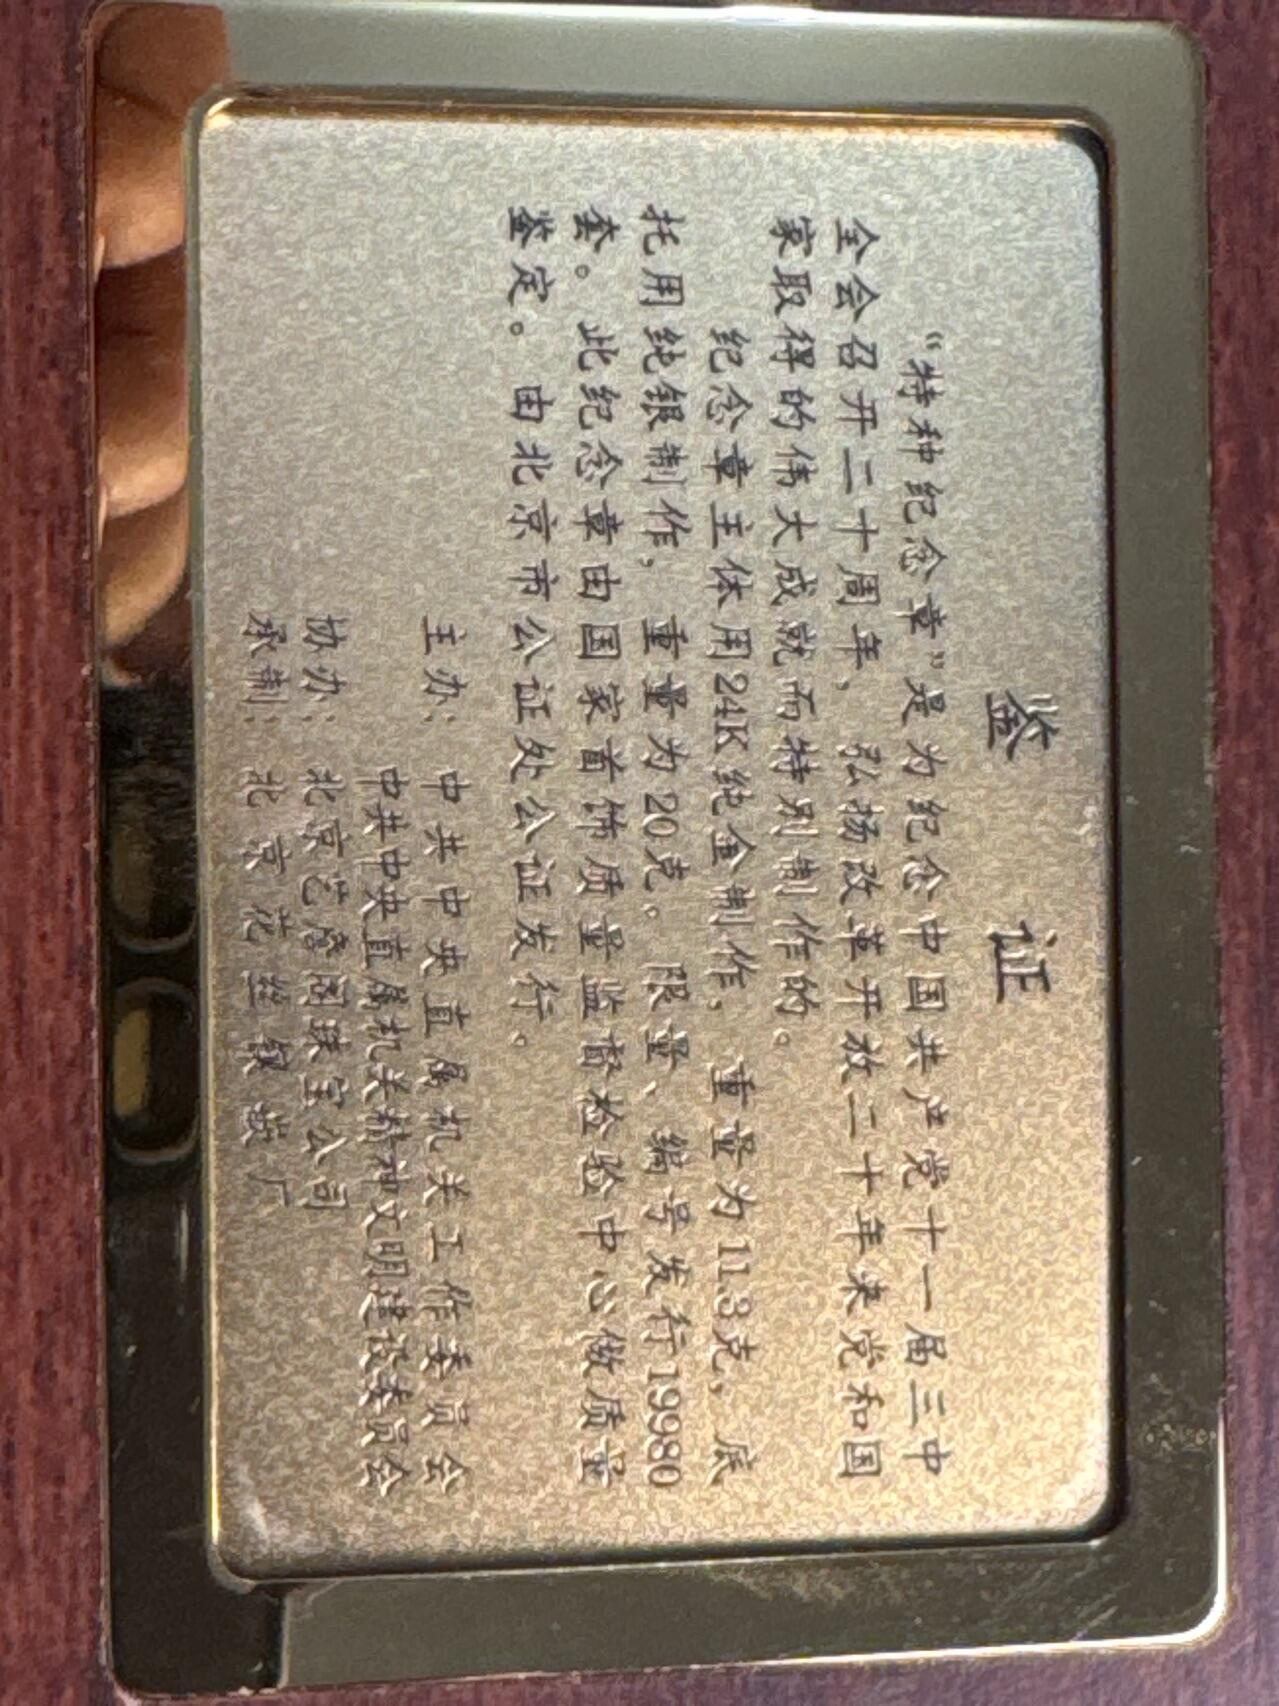 鉴 证
“特种纪念章”是为纪念中国共产党十一届三中
全会召开二十周年，弘扬改革开放二十年来党和国
家取得的伟大成就而特别制作的。
纪念章主体用24K纯金制作，重量为11.3克，底
托用纯银制作，重量为20克。限量、编号发行19980
套。此纪念章由国家首饰质量监督检验中心做质量
鉴定。由北京市公证处公证发行。
主办：中共中央直属机关工作委员会
中共中央直属机关精神文明建设委员会
协办：北京艺 阁珠宝公司
承制：北京花丝镶嵌厂